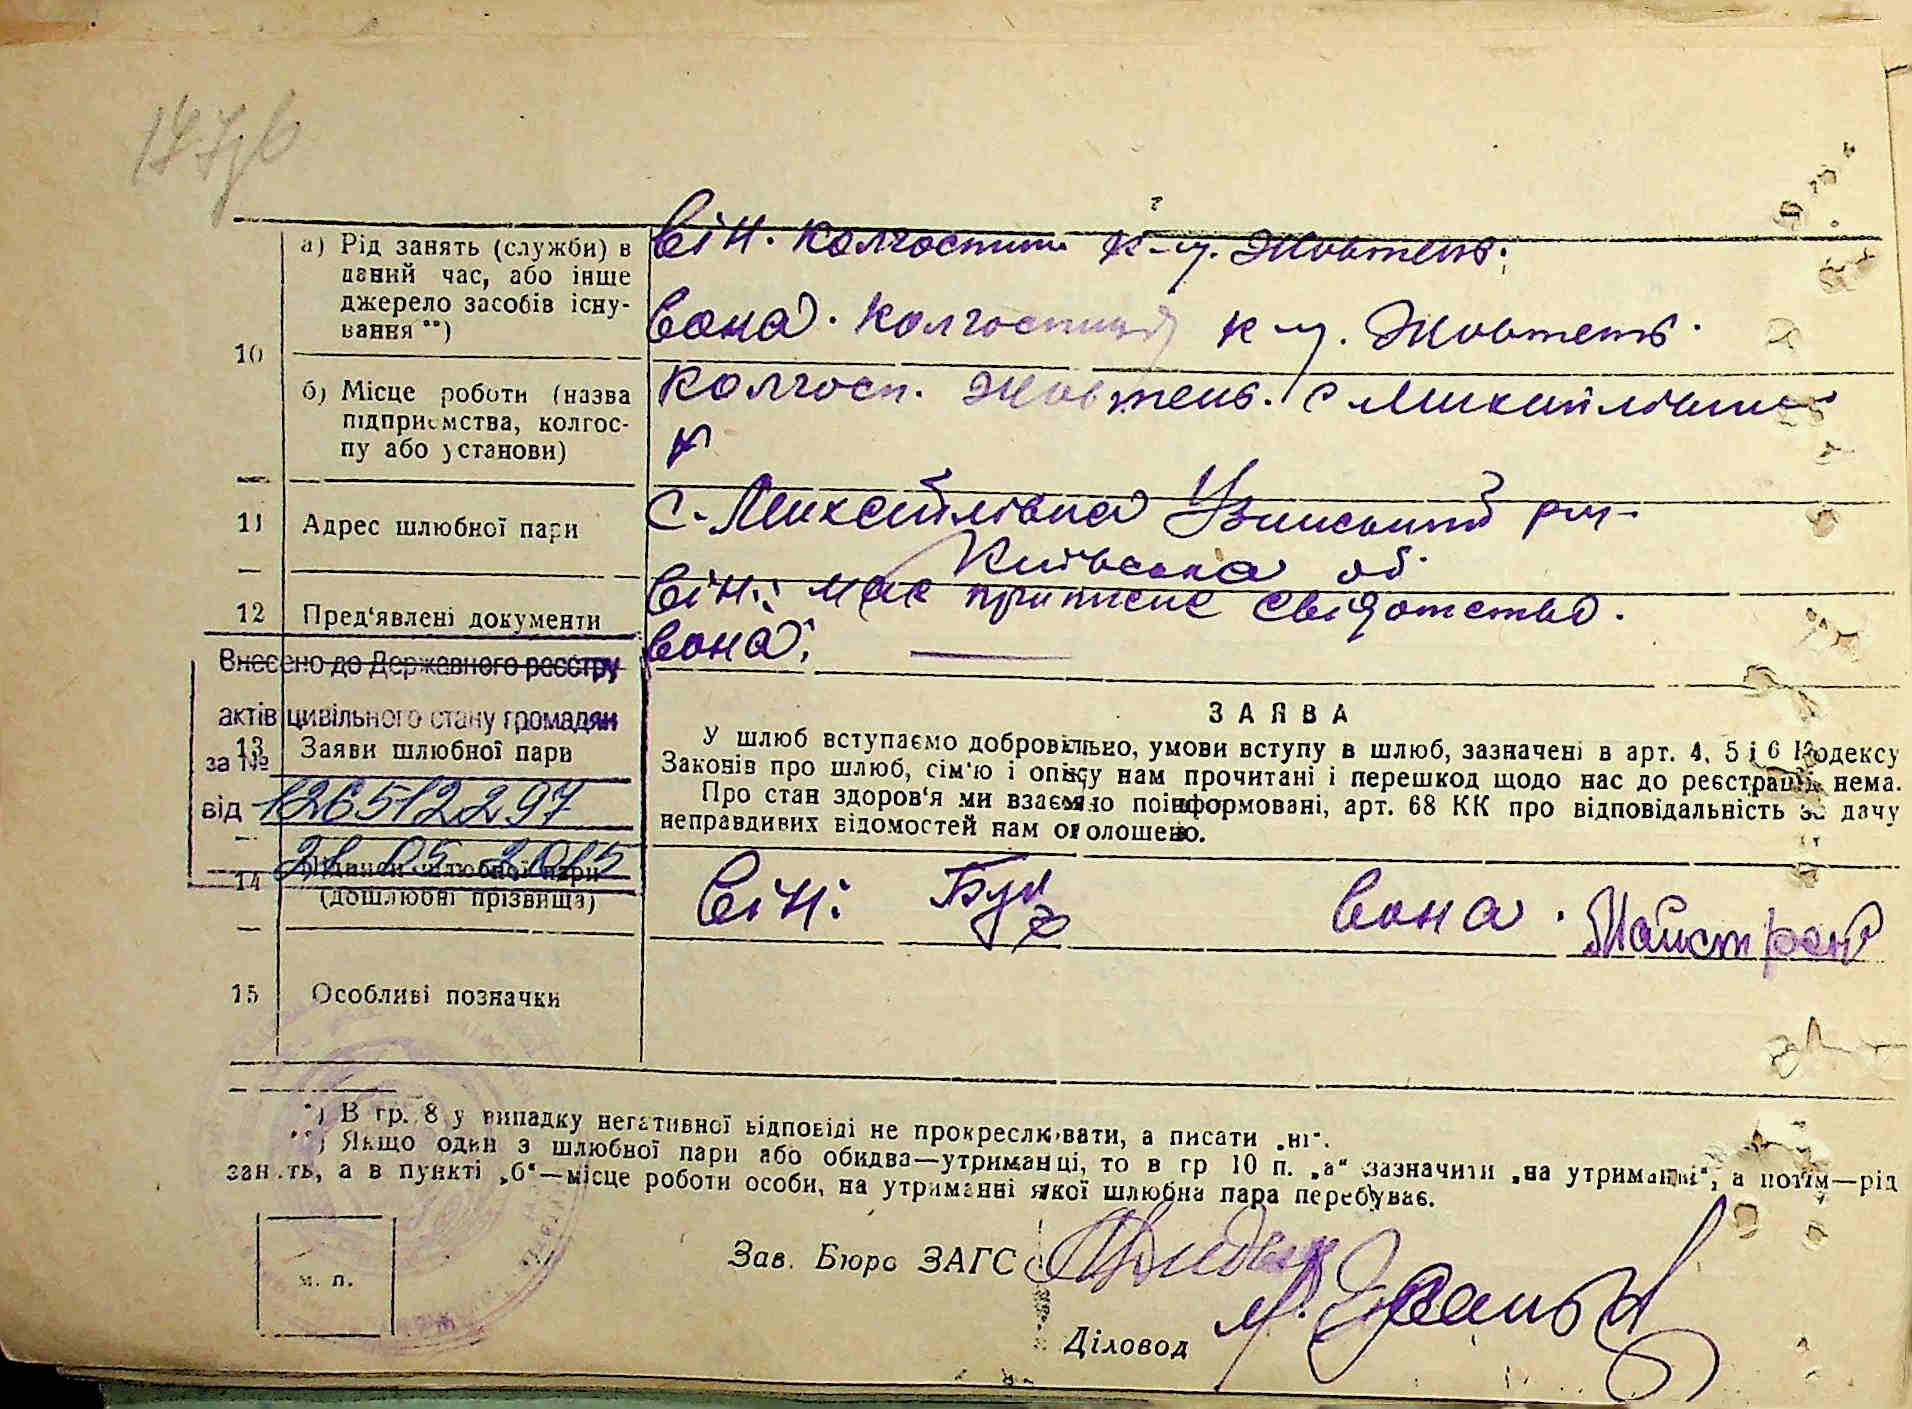 177зв
а) Рід занять (служби) в
даний час, або інше
джерело засобів існу-
вання **)
Він. колгоспник к-п. Жовтень.
Вона. колгоспниця к-п. Жовтень.
10
б) Місце роботи (назва
підприємства, колгос-
пу або установи)
Колгосп. Жовтень. с Михайлівка
11
Адрес шлюбної пари
с. Михайлівка Узинський р-н
Київська об.
12
Пред'явлені документи
Він: має приписне свідотство.
Вона: —
Внесено до Державного реєстру
актів цивільного стану громадян
за №
126512297
від
21 05 2015
13
Заяви шлюбної пари
ЗАЯВА
У шлюб вступаємо добровільно, умови вступу в шлюб, зазначені в арт. 4, 5 і 6 Кодексу
Законів про шлюб, сім'ю і опіку нам прочитані і перешкод щодо нас до реєстрації нема.
Про стан здоров'я ми взаємно поінформовані, арт. 68 КК про відповідальність за дачу
неправдивих відомостей нам оголошено.
14
Підписи шлюбної пари
(дошлюбні прізвища)
Він:
Вона.
15
Особливі позначки
*) В гр. 8 у випадку негативної відповіді не прокреслювати, а писати „ні".
**) Якщо один з шлюбної пари або обидва—утриманці, то в гр 10 п. „а" зазначити „на утриманні", а потім—рід
занять, а в пункті „б"—місце роботи особи, на утриманні якої шлюбна пара перебуває.
м. п.
Зав. Бюро ЗАГС
Діловод